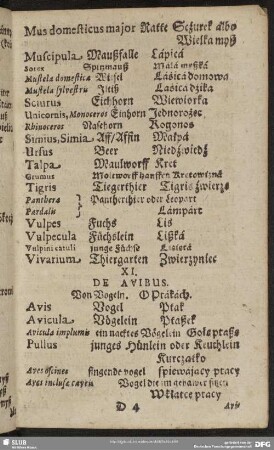 Mus domesticus major Ratte Sczurek albo
Wielka myß
Muscipula Maußfalle Lápicá
Sorex Spitzmauß Malá myßká
Mustela domestica Wisel Lásicá domowa
Mustela sylvestris Iltiß Lasica dzika
Sciurus Eichhorn Wiewiorka
Unicornis, Monoceros Einhorn Jednorożec
Rhinoceros Nasehorn Rogonos
Simius, Simia Aff/Affin Małpa
Ursus Beer Niedźwiedź
Talpa Maulworff Kret
Grumus Molworffhauffen Kretowizná
Tigris Tiegerthier Tigris źwierz
Panthera } Pantherthier oder Leopart
Pardalis } Lámpárt
Vulpes Fuchs Lis
Vulpecula Füchslein Lißká
Vulpini catuli junge Füchse
Vivarium Thiergarten Zwierzyniec
XI.
DE AVIBUS.
Von Vogeln. O Ptákách.
Avis Vogel Ptak
Avicula Vögelein Ptaßek
Avicula implumis ein nacktes Vögelein Gołe ptaßę
Pullus junges Hünlein oder Keuchlein
Kurczątko
Aves oscines singende vogel spiewájący ptacy
Aves inclusæ caveis Vogel die im gebawer sitzen
W klatce ptacy
D 4 Avis
SLUB